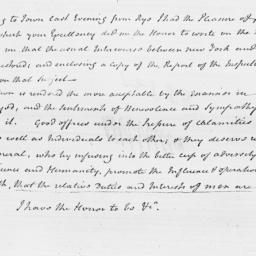 to Town last Evening from Rye I had the Pleasure of
which your Excellency did me the Honor to write on the
me that the usual Intercourse between new York and
restored; and enclosing a copy of the Report of the
on that Subject—
is rendered the more acceptable by the manner in
and the Sentiments of Benevolence and Sympathy
it. Good offices under the Pressure of calamities
as well as Individuals to each other; & they deserve
who by infusing into the bitter cup of adversity
and Humanity, promote the Influence & operation
that the relative Duties and Interests of men are
I have the Honor to be &c.